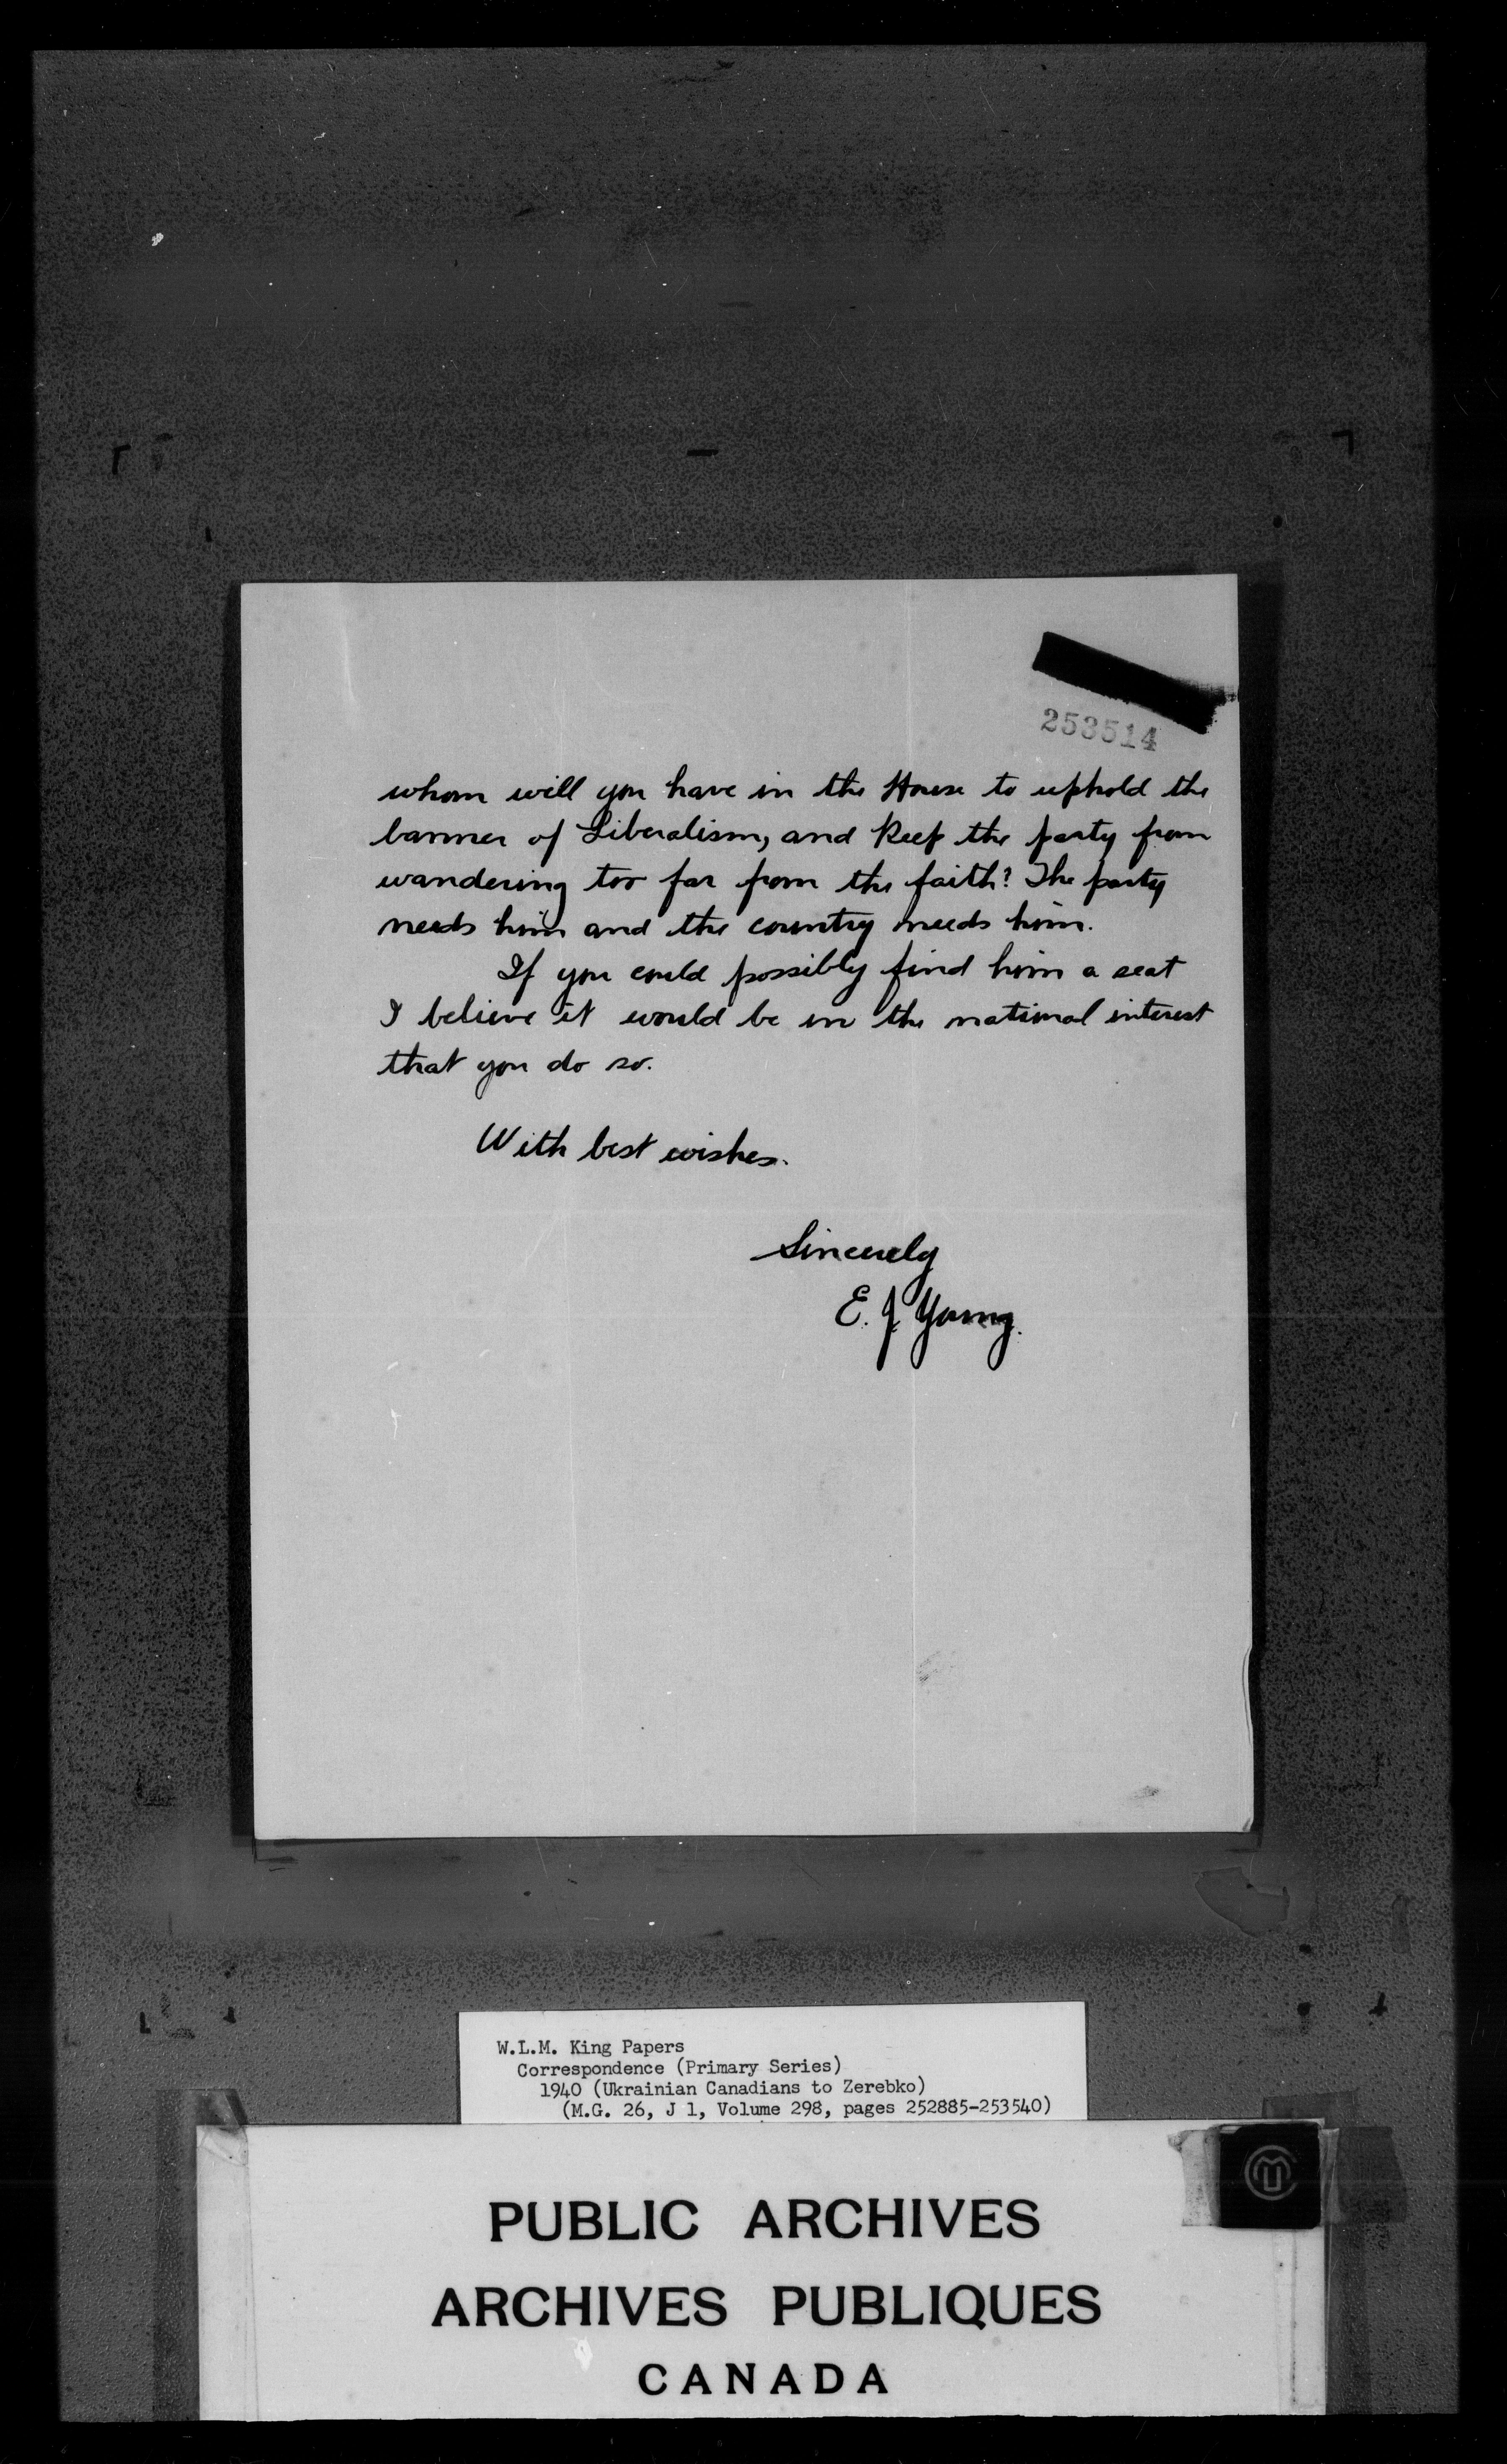 253514
whom will you have in the House to uphold the
banner of Liberalism, and keep the party from
wandering too far from the faith? The party
needs him and the country needs him.
If you could possibly find him a seat
I believe it would be in the national interest
that you do so.
With best wishes.
Sincerely
E. J. Young.
W.L.M. King Papers
Correspondence (Primary Series)
1940 (Ukrainian Canadians to Zerebko)
(M.G. 26, J 1, Volume 298, pages 252885-253540)
PUBLIC ARCHIVES
ARCHIVES PUBLIQUES
CANADA